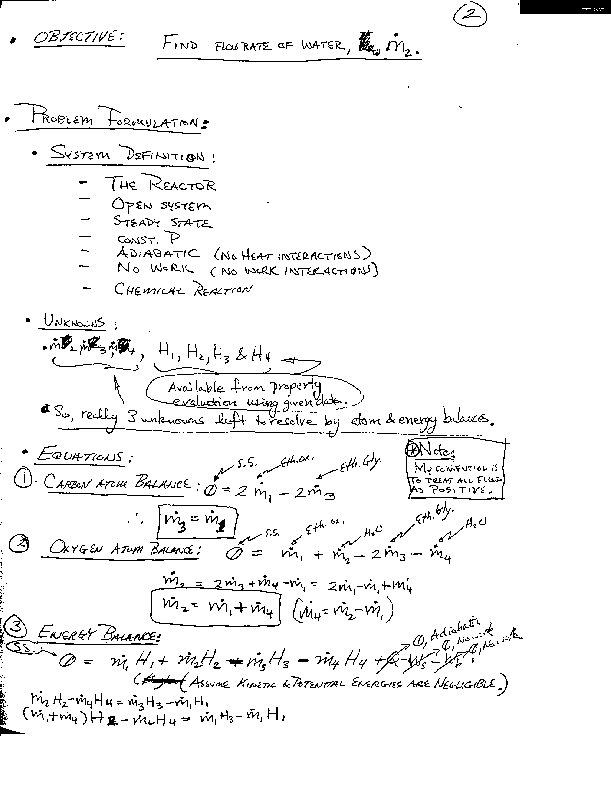 2
• OBJECTIVE: FIND FLOWRATE OF WATER, ṁ₂.
• PROBLEM FORMULATION:
• SYSTEM DEFINITION:
- THE REACTOR
- OPEN SYSTEM
- STEADY STATE
- CONST. P
- ADIABATIC (NO HEAT INTERACTIONS)
- NO WORK (NO WORK INTERACTIONS)
- CHEMICAL REACTION
• UNKNOWNS:
H₁, H₂, H₃ & H₄
Available from property
evaluation using given data.
So, really 3 unknowns left to resolve by atom & energy balances.
• EQUATIONS:
Note:
MY CONVENTION IS
TO TREAT ALL FLOWS
AS POSITIVE.
S.S. Eth. ox. Eth. Gly.
① CARBON ATOM BALANCE: 0 = 2ṁ₁ - 2ṁ₃
∴ ṁ₃ = ṁ₁
S.S. Eth. ox. H₂O Eth. Gly. H₂O
② OXYGEN ATOM BALANCE: 0 = ṁ₁ + ṁ₂ - 2ṁ₃ - ṁ₄
ṁ₂ = 2ṁ₃ + ṁ₄ - ṁ₁ = 2ṁ₁ - ṁ₁ + ṁ₄
ṁ₂ = ṁ₁ + ṁ₄ (ṁ₄ = ṁ₂ - ṁ₁)
③ ENERGY BALANCE:
0, Adiabatic 0, No work 0, No work
S.S. 0 = ṁ₁H₁ + ṁ₂H₂ - ṁ₃H₃ - ṁ₄H₄
(ASSUME KINETIC & POTENTIAL ENERGIES ARE NEGLIGIBLE.)
ṁ₂H₂ - ṁ₄H₄ = ṁ₃H₃ - ṁ₁H₁
(ṁ₁ + ṁ₄)H₂ - ṁ₄H₄ = ṁ₁H₃ - ṁ₁H₁